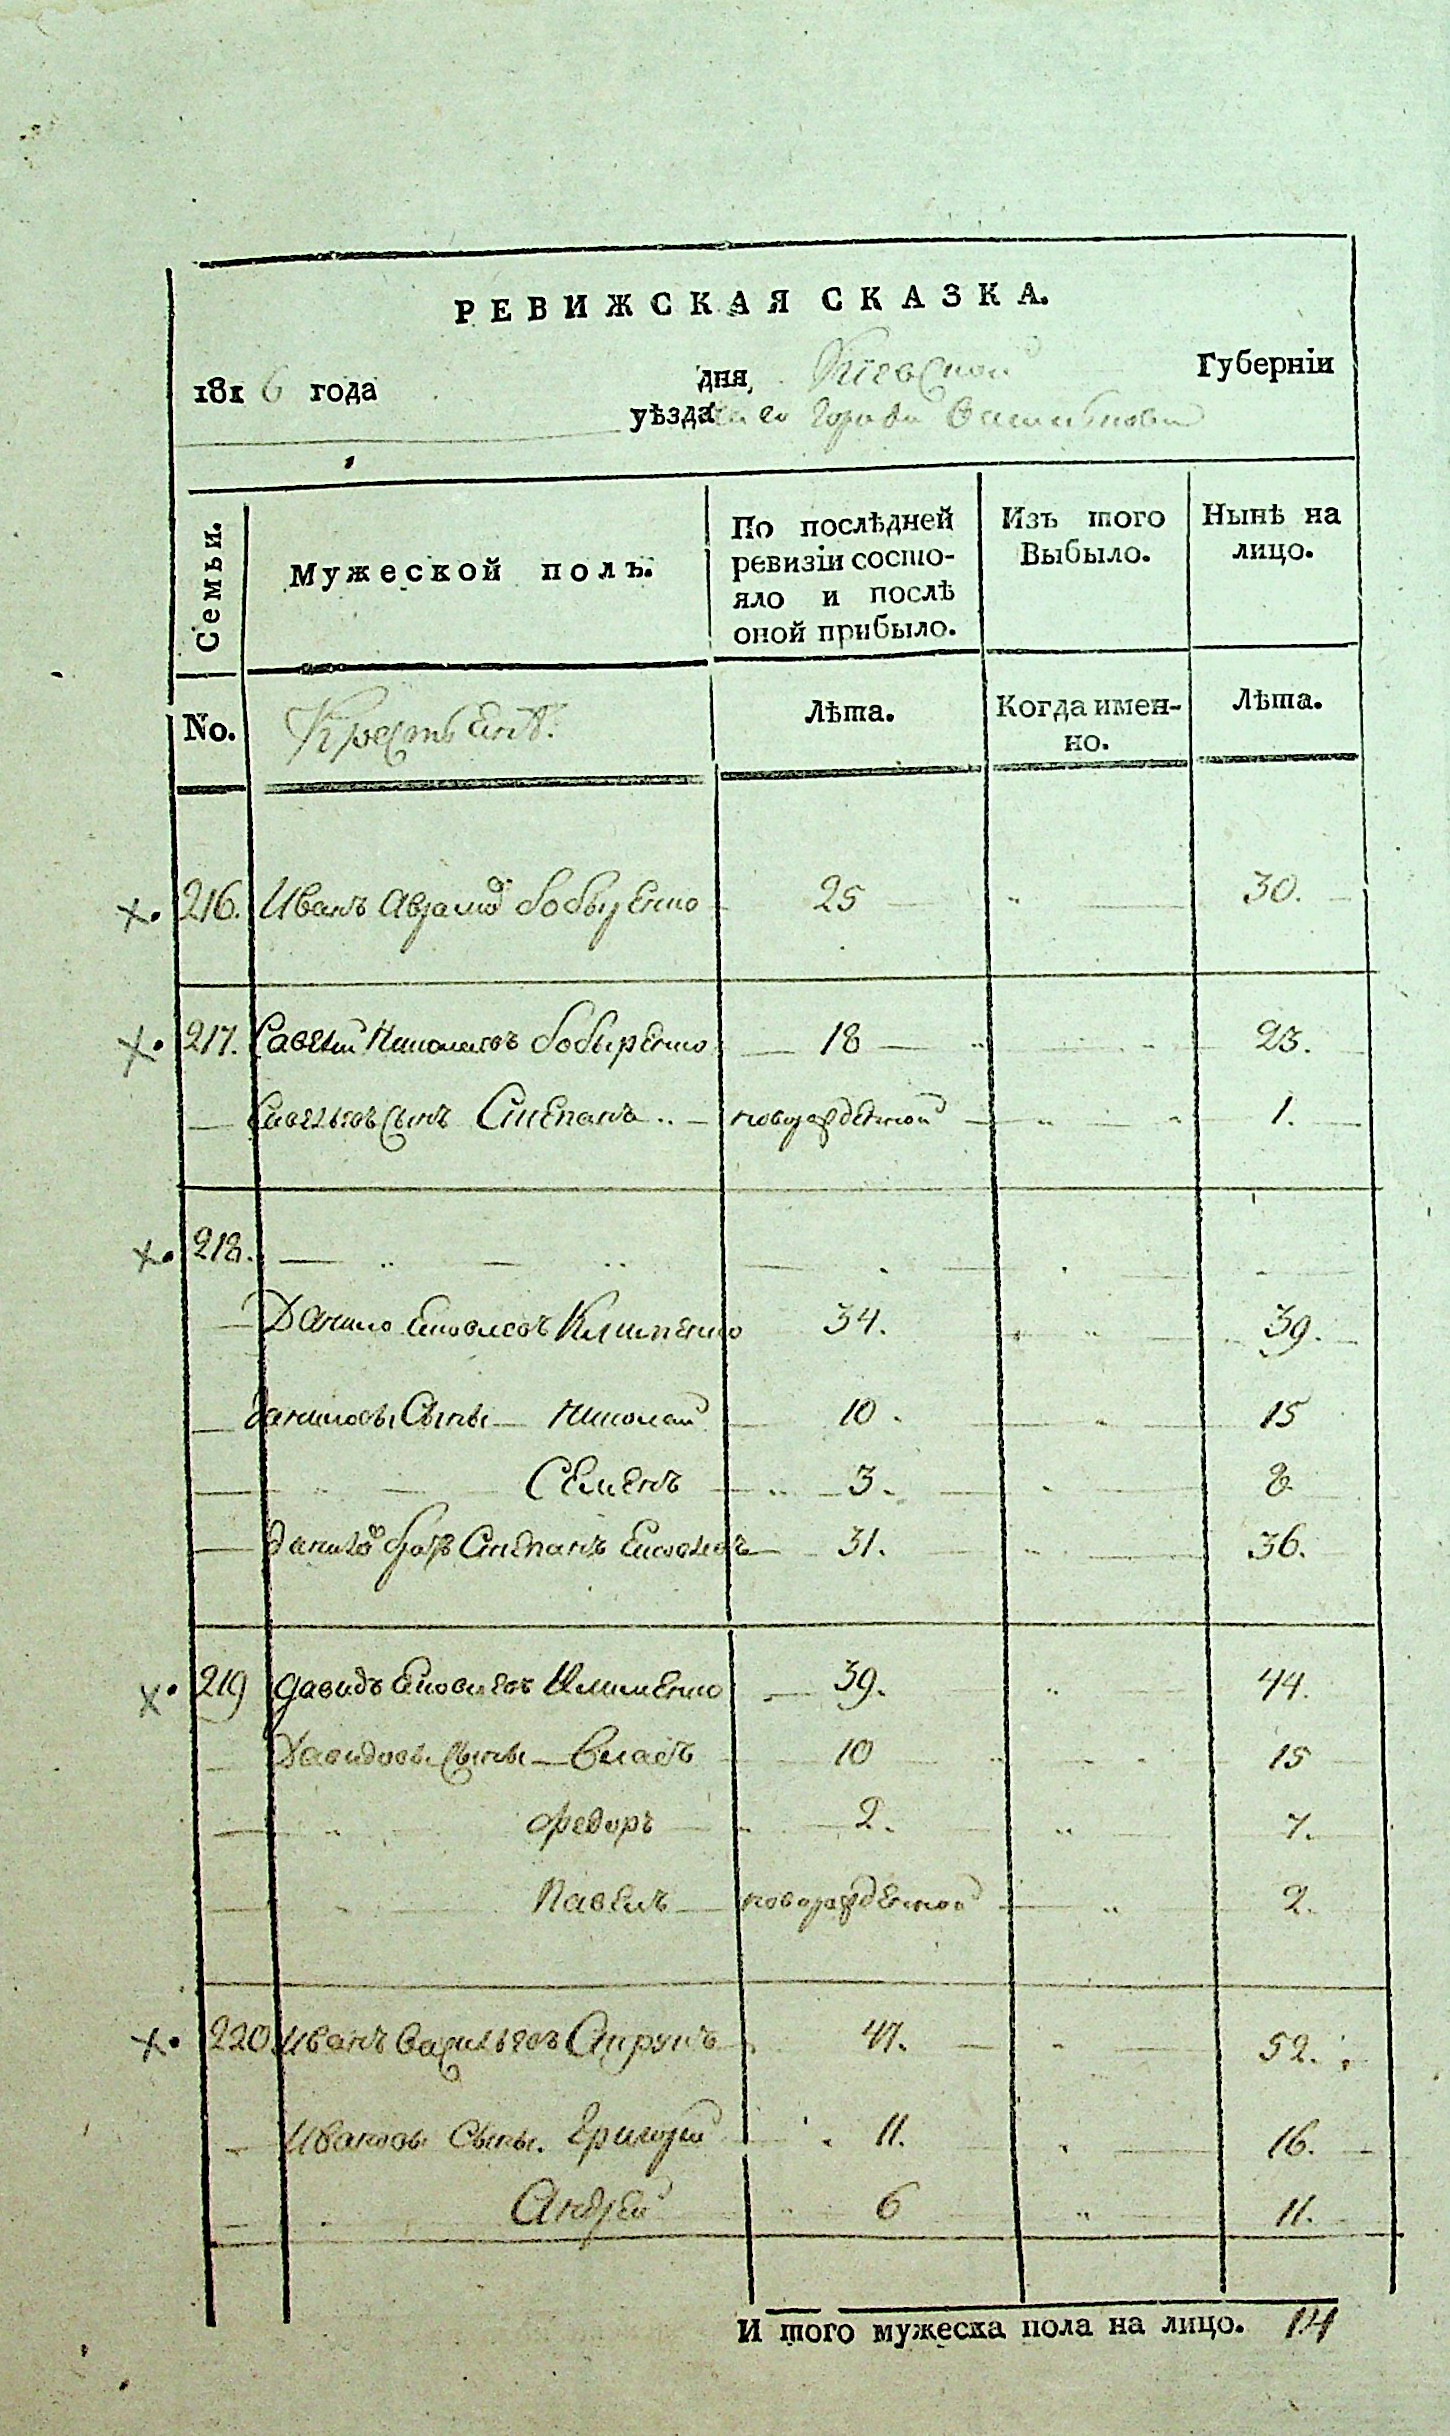 РЕВИЖСКАЯ СКАЗКА.
1816 года дня, Кіевской Губерніи
уѣзда города
Семьи.
Мужеской полъ.
По послѣдней ревизіи состо-
яло и послѣ
оной прибыло.
Изъ того
Выбыло.
Нынѣ на
лицо.
No.
Крестьенѣ.
Лѣта.
Когда имен-
но.
Лѣта.
х. 216. Иванъ 25 30.
х. 217. Савелій Николаевъ Бобыренко 18 23.
Савельевъ Сынъ Степанъ новорожденной 1.
х. 218.
Данило Яковлевъ Клименко 34. 39.
Даниловы Сыны Николай 10. 15
Семенъ 3. 8
Данилов братъ Степанъ Яковлевъ 31. 36.
х. 219 Давидъ Яковлевъ Клименко 39. 44.
Давидовы Сыны Власъ 10 15
Федоръ 2. 7.
Павелъ новорожденной 2.
х. 220. Иванъ Васильевъ 47. 52.
Ивановы Сыны. Григорій 11. 16.
Андрей 6 11.
И того мужеска пола на лицо. 14